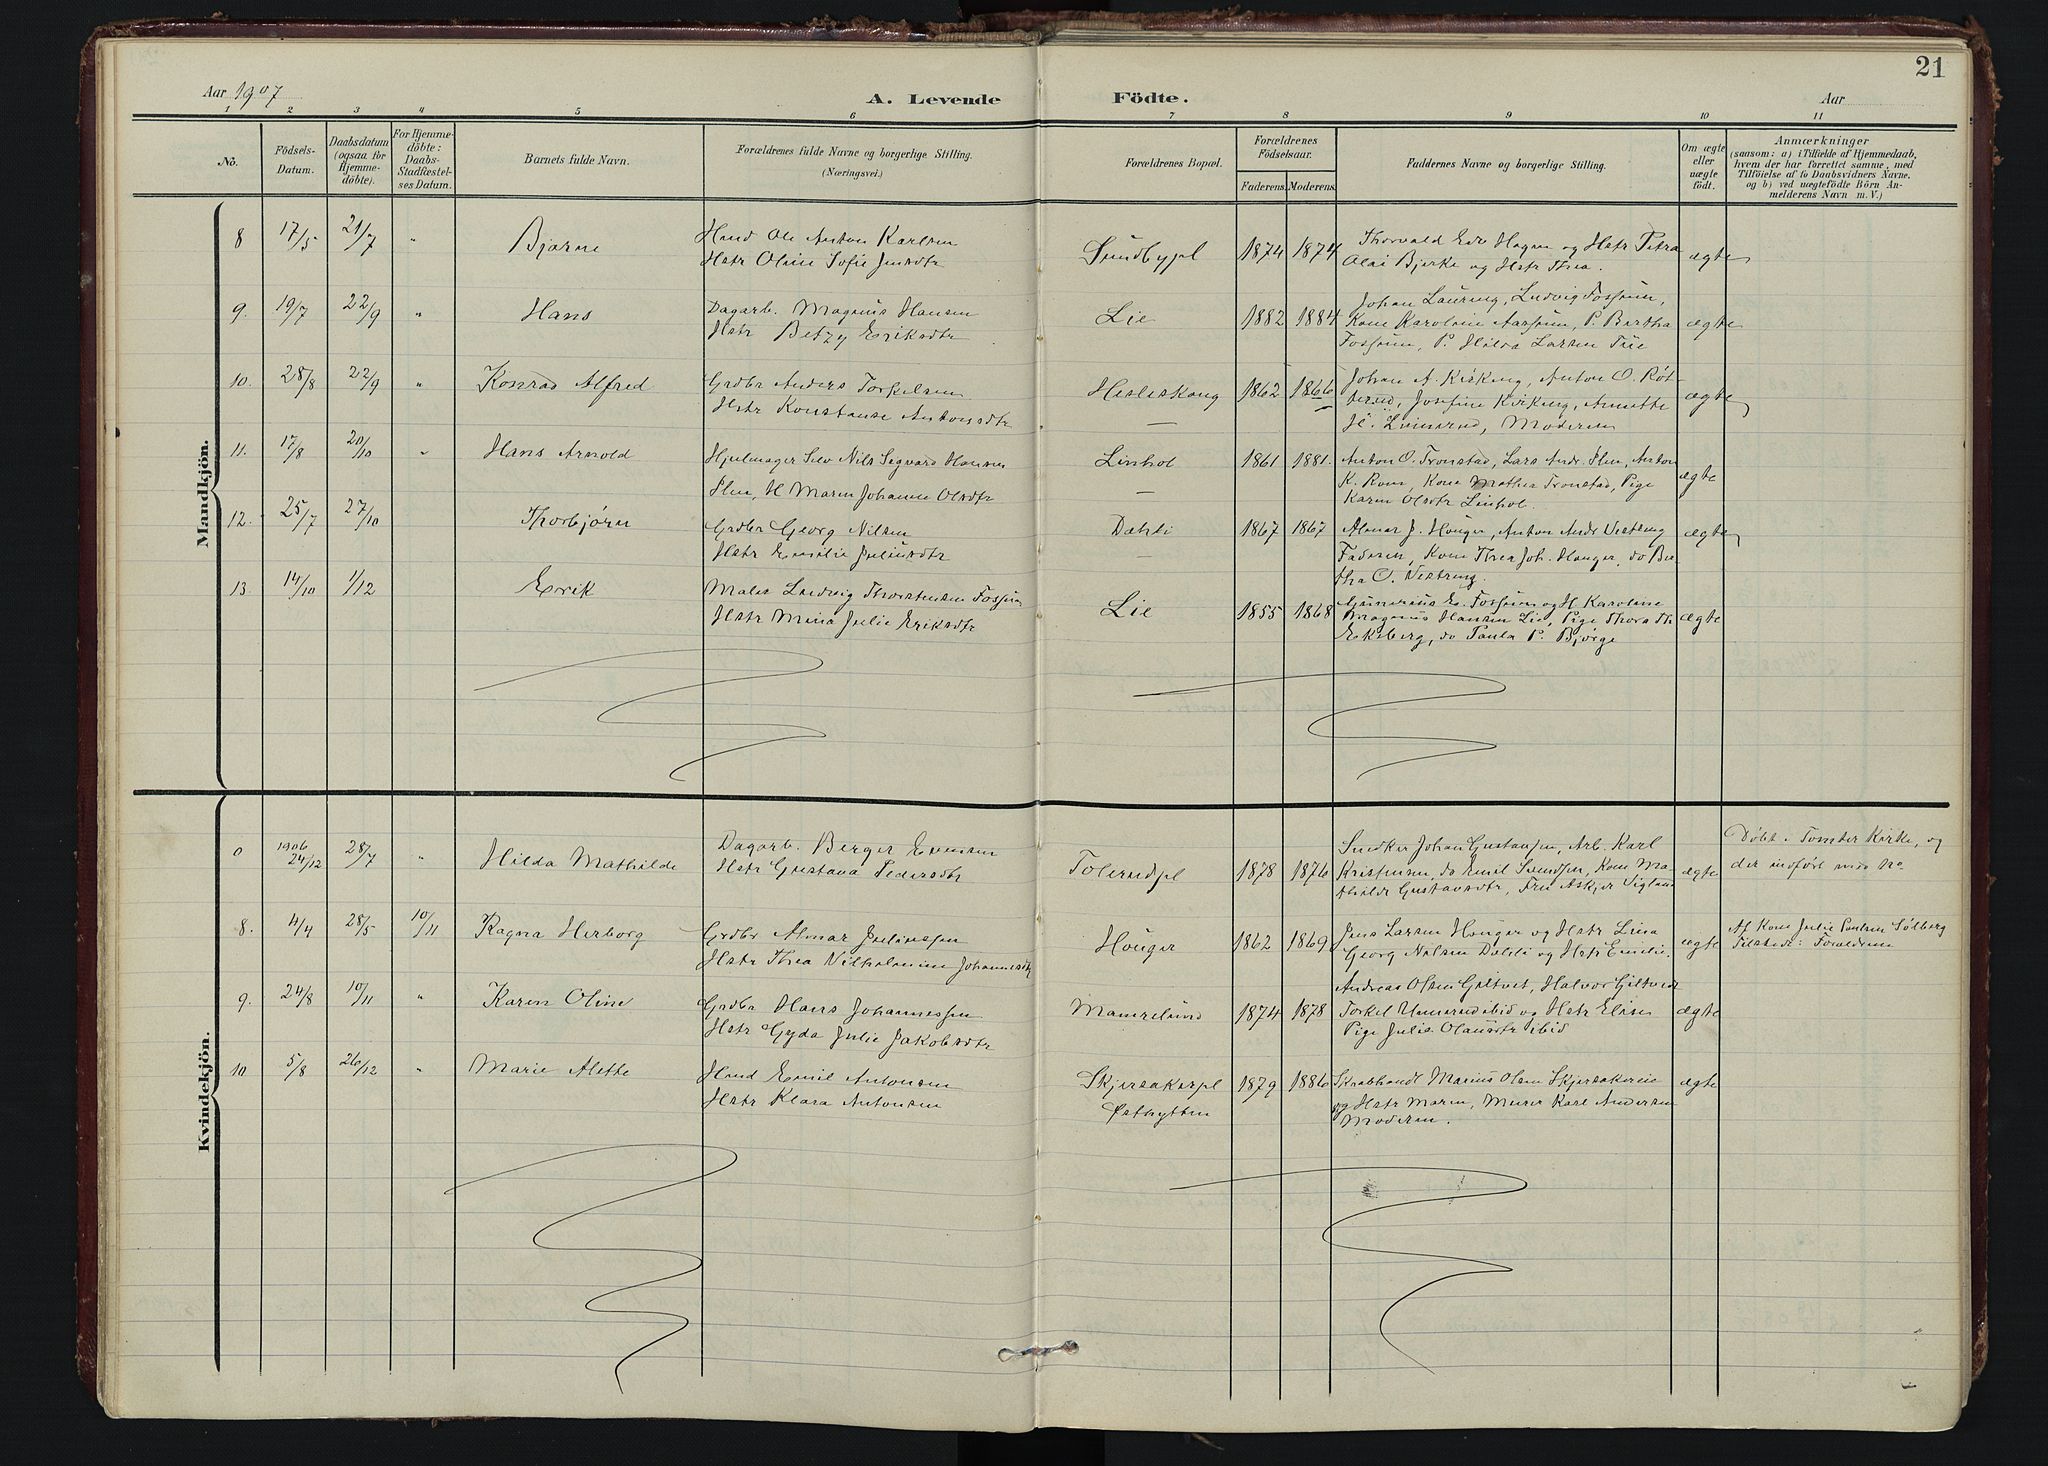 21
Aar 1907
A. Levende Födte.
Aar
1 2 3 4 5 6 7 8 9 10 11
No.
Födsels-
Datum.
Daabsdatum
(ogsaa for
Hjemme-
döbte).
For Hjemme-
döbte:
Daabs-
Stadfæstel-
ses Datum.
Barnets fulde Navn.
Forældrenes fulde Navne og borgerlige Stilling.
(Næringsvei.)
Forældrenes Bopæl.
Forældrenes
Födselsaar.
Faderens. Moderens.
Faddernes Navne og borgerlige Stilling.
Om ægte
eller
uægte
födt.
Anmærkninger
(saasom: a) i Tilfælde af Hjemmedaab,
hvem der har forrettet samme, med
Tilföielse af to Daabsvidners Navne.
og b) ved uægtefödte Börn An-
melderens Navn m. V.)
Mandkjön.
8 17/5 21/7 " Bjarne
Ole Anton Karlsen
Hstr Oline Sofie Jensdtr
Sundbypl 1874 1874
Thorvald Edv Hagen og Hstr Petra
Olai Bjerke og Hstr Thea.
ægte
9. 19/7 22/9 " Hans
Dagarb. Magnus Hansen
Hstr Betzy Eriksdtr
Lie 1882 1884
Johan Lauring, Ludvig Fossum,
Kone Karoline Aassum, P. Bertha
Fossum, P. Hilda Larsen
ægte
10. 28/8 22/9 " Konrad Alfred
Grdbr Anders Torkelsen
Hstr Konstanse Antonsdtr
Hesleskoug 1862 1866
Johan A. Kirking, Anton O. Röt-
terud, Josefine Kirking, Annette
Moderen
ægte
11. 17/8 20/10 " Hans Arnold
Hjulmager Selv Nils Segvard Hansen
H Maren Johanne Olsdtr
Linhol 1861 1881.
Anton O. Tronstad, Lars Andr. Anton
K. Rom, Kone Mathea Tronstad, Pige
Karen Olsdtr Linhol.
ægte
12. 25/7 27/10 Thorbjörn
Grdbr Georg Nilsen
Hstr Emilie Juliusdtr
Dæhli 1867 1867
Almar J. Houger, Anton Andr Vestreng
Faderen, Kone Thea Joh. Houger, do Ber-
tha O. Vestreng.
ægte
13. 14/10 1/12 Erik
Maler Ludvig Thorstensen Fossum
Hstr Mina Julie Eriksdtr
Lie 1855 1868
Gunerius E. Fossum og H Karoline
Magnus Hansen Lie, Pige Thora Th
Ekeberg, do Paula P. Bjørge
ægte
Kvindekjön.
0 1906 24/12 28/7 " Hilda Mathilde
Dagarb. Berger Evensen
Hstr Gustava Pedersdtr
Tolerudpl 1878 1876
Snedker Johan Gustavsen, Arb. Karl
Kristensen, do Emil Svendsen, Kone Ma-
thilde Gustavsdtr, Fru Askjer Vigland
ægte
Døbt i Tomter Kirke, og
der indført med No
8. 4/4 28/5 10/11 Ragna Herborg
Grdbr Almar Juliussen
Hstr Thea Vilhelmine Johannesdtr
Houger 1862 1869
Jens Larsen Houger og Hstr Lina
Georg Nilsen Dæhli og Hstr Emilie.
ægte
Af Kone Julie Paulsen Sølberg
Tilstede: Forældrene
9. 24/8 10/11 " Karen Oline
Grdbr Hans Johannessen
Hstr Gyda Julie Jakobsdtr
Mamrelund 1874 1878
Andreas Olsen Giltvet, Halvor Giltvedt
Torkel ibid og Hstr Elise
Pige Julie Olausdtr ibid
ægte
10 5/8 26/12 " Marie Alette
Emil Antonsen
Hstr Klara Antonsen
Skjersakerpl
Østhytten
1879 1886
Skrabhandl Marius Olsen
og Hstr Maren, Murer Karl Andersen
Moderen.
ægte